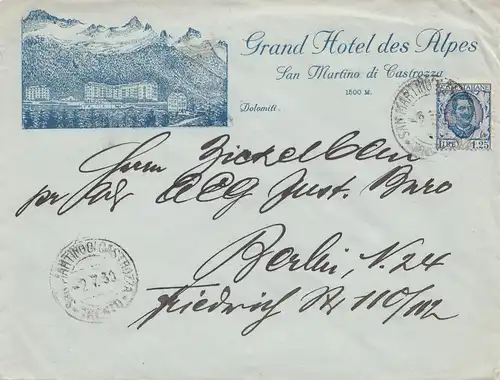 Grand Hotel des Alpes
San Martino di Castrozza
1500 M.
Dolomiti.
SAN MARTINO
ITALIANE
1,25
Herrn Zickelbein
pr Adr AEG Just. Büro
Berlin, N. 24
Friedrich Str 110/112
SAN MARTINO DI CASTROZZA
2.7.30
(TRENTO)